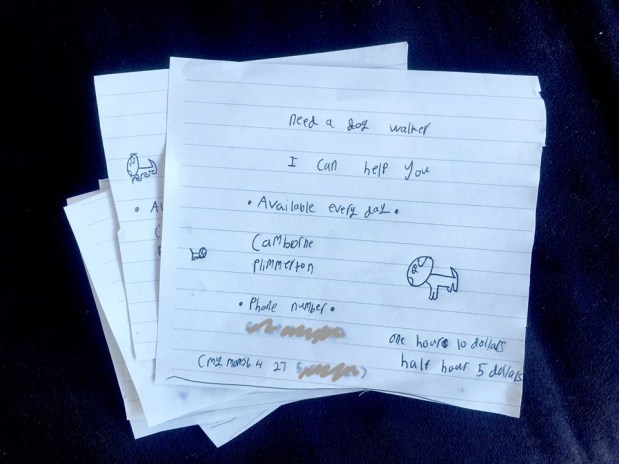 need a dog walker
I can help you
• Available every day •
Camborne
Plimmerton
• Phone number •
one hour 10 dollars
half hour 5 dollars
(my mons 4 27 )
• A